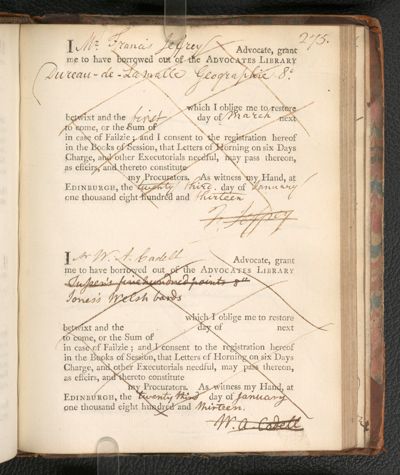 275.
I Mr. Francis Jeffrey Advocate, grant
me to have borrowed out of the ADVOCATES LIBRARY
Dureau-de-Lamalle Geographie 8o.
which I oblige me to restore
betwixt and the first day of March next
to come, or the Sum of
in case of Failzie; and I consent to the registration hereof
in the Books of Session, that Letters of Horning on six Days
Charge, and other Executorials needful, may pass thereon,
as effeirs, and thereto constitute
my Procurators. As witness my Hand, at
EDINBURGH, the twenty third day of January
one thousand eight hundred and thirteen
F. Jeffrey
I Mr W. A. Cadell Advocate, grant
me to have borrowed out of the ADVOCATES LIBRARY
Tusser's five hundred points 8vo
Jones's Welsh bards
which I oblige me to restore
betwixt and the day of next
to come, or the Sum of
in case of Failzie; and I consent to the registration hereof
in the Books of Session, that Letters of Horning on six Days
Charge, and other Executorials needful, may pass thereon,
as effeirs, and thereto constitute
my Procurators. As witness my Hand, at
EDINBURGH, the twenty third day of January
one thousand eight hundred and thirteen.
W. A. Cadell